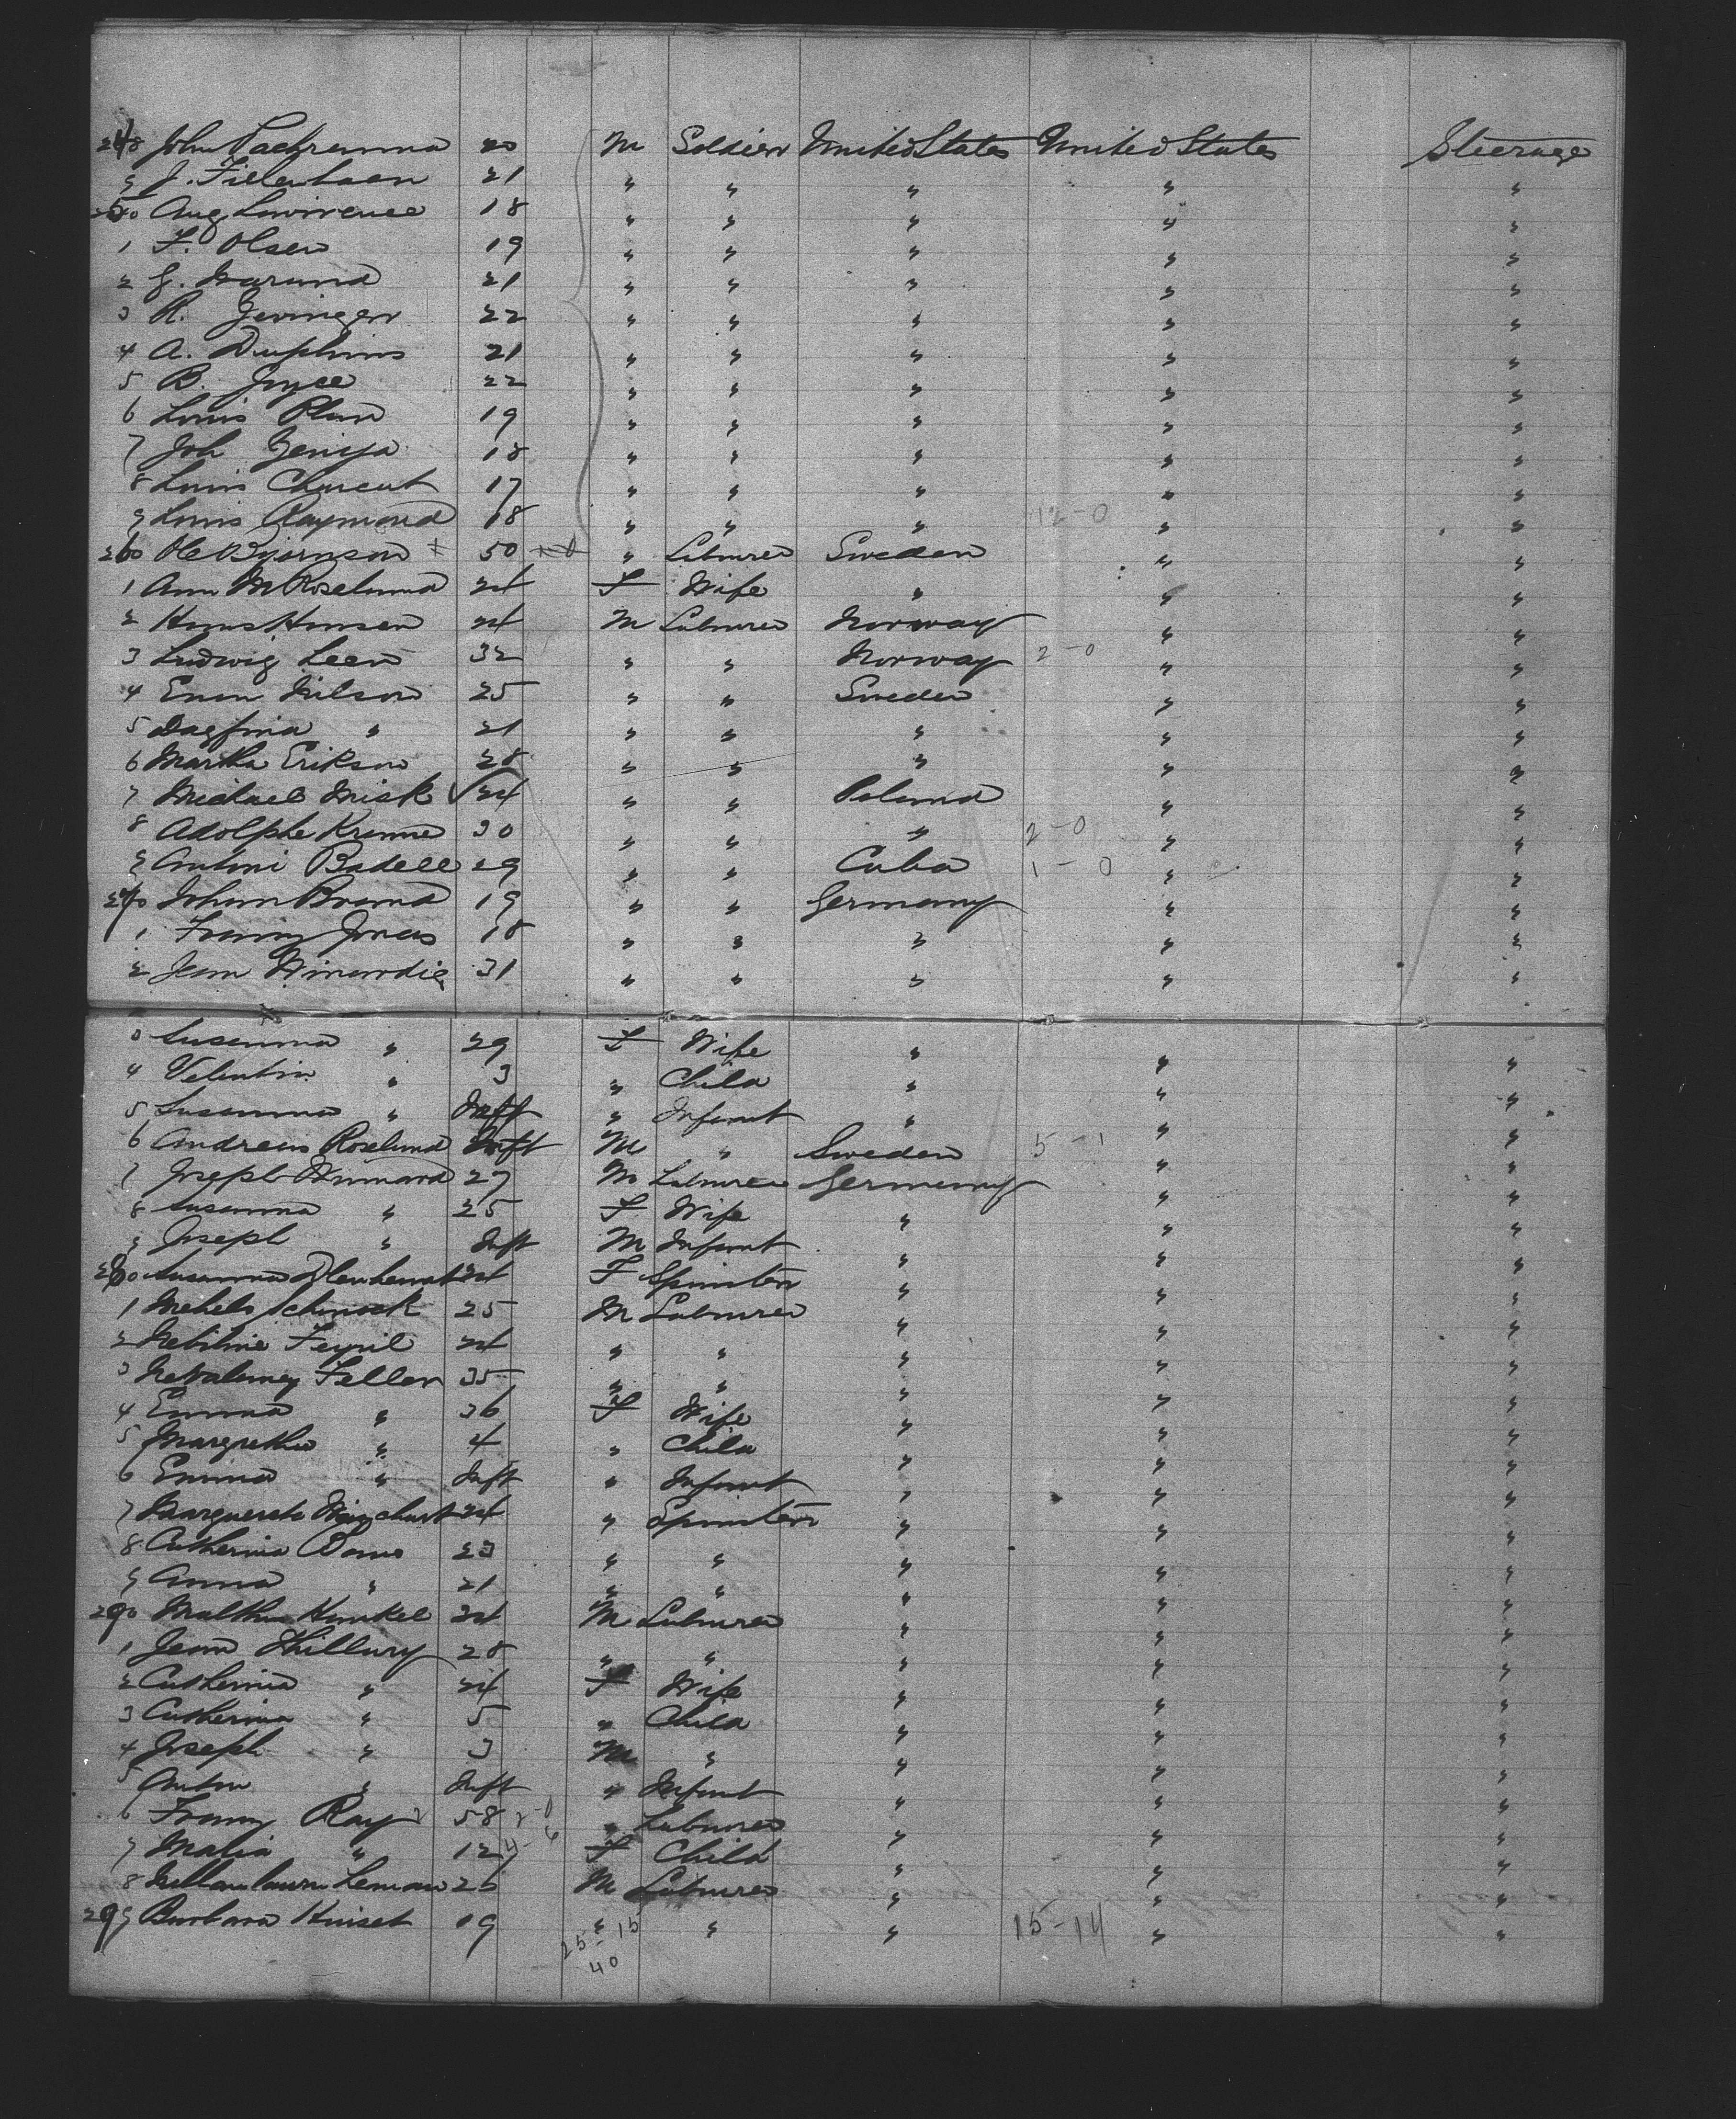 248 John 20 M Soldier United States United States Steerage
9 J. 21 " " " " "
250 Aug Lawrence 18 " " " " "
1 F. Olsen 19 " " " " "
2 G. 21 " " " " "
3 R. 22 " " " " "
4 A. Duphins 21 " " " " "
5 B. Joyce 22 " " " " "
6 Louis Plan 19 " " " " "
7 Joh 18 " " " " "
8 Louis 17 " " " " "
9 Louis Raymond 18 " " " 12-0 " "
260 Ole Bjornson 50 " Laborer Sweden " "
1 Ann M Roselund 24 F Wife " " "
2 Hans Hansen 24 M Laborer Norway " "
3 Ludwig Leen 32 " " Norway 2-0 " "
4 Enon Nilson 25 " " Sweden " "
5 Dagfina " 21 " " " " "
6 Martha Erikson 28 " " " " "
7 Michael Misk 24 " " Poland " "
8 Adolphe Krumme 30 " " " 2-0 " "
9 Antoni Badell 29 " " Cuba 1-0 " "
270 Johan Brand 19 " " Germany " "
1 Franz Jonas 18 " " " " "
2 Jean 31 " " " " "
3 Susanna " 29 F Wife " " "
4 Valentin " 3 " Child " " "
5 Susanna " Inft " Infant " " "
6 Andreas Roselund Inft M " Sweden 5-1 " "
7 Joseph 27 M Laborer Germany " "
8 Susanna " 25 F Wife " " "
9 Joseph " Inft M Infant " " "
280 Susanna 24 F Spinster " " "
1 Schmock 25 M Laborer " " "
2 24 " " " " "
3 Feller 35 " " " " "
4 Emma " 36 F Wife " " "
5 Margretha " 4 " Child " " "
6 Emma " Inft " Infant " " "
7 24 " Spinster " " "
8 Catherina 23 " " " " "
9 Anna " 21 " " " " "
290 Kunkel 24 M Laborer " " "
1 Jean Hillary 28 " " " " "
2 Catherina " 24 F Wife " " "
3 Catherina " 5 " Child " " "
4 Joseph " 3 M " " " "
5 Anton " Inft " Infant " " "
6 Franz Ray 58 2-0 " Laborer " " "
7 Malia " 12 4-6 F Child " " "
8 Leman 26 M Laborer " " "
299 Barbara 19 " " " 15-14 " "
25-15
40